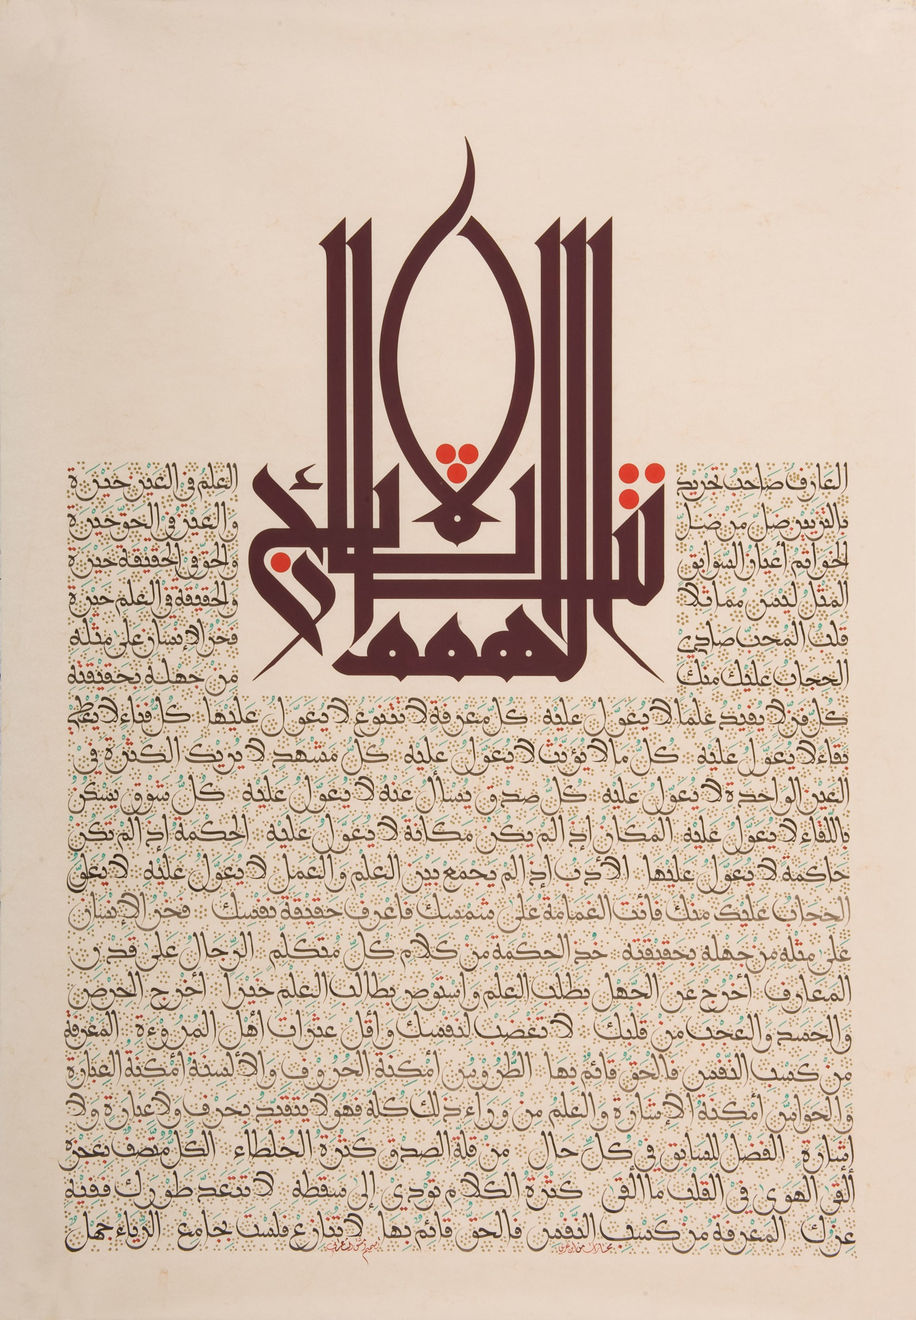 العارف صاحب تجريد
بالتزيين ضل من ضل
الخواتم أعيان السوابق
المثل ليس مماثلا
قلب المحب صادي
الحجاب عليك منك
العلم في العين حيرة
والعين في الحق حيرة
والحق في الحقيقة حيرة
والحقيقة في العلم حيرة
فخر الإنسان على مثله
من جهله بحقيقته
كل فن لا يفيد علما لا يعول عليه كل معرفة لا تتنوع لا يعول عليها كل فناء لا يعطي
بقاء لا يعول عليه كل ما لا يؤنث لا يعول عليه كل مشهد لا يريك الكثرة في
العين الواحدة لا يعول عليه كل صدق يسأل عنه لا يعول عليه كل شوق يسكن
باللقاء لا يعول عليه المكان إذ الم يكن مكانة لا يعول عليه الحكمة إذ الم يكن
حاكمة لا يعول عليها الأدب إذ الم يجمع بين العلم والعمل لا يعول عليه
الحجاب عليك منك فأنت الغمامة على شمسك فاعرف حقيقة نفسك فخر الإنسان
على مثله من جهله بحقيقته خذ الحكمة من كلام كل متكلم الرجال على قدر
المعارف أخرج عن الجهل بطلب العلم واستوص بطالب العلم خيرا أخرج الحرص
والحسد والعجب من قلبك لا تغضب لنفسك وأقل عثرات أهل المروءة المعرفة
من كسب النفس فالحق قائم بها الطروس أمكنة الحروف والألسنة أمكنة العبارة
والحواس أمكنة الإشارة والعلم من وراء ذلك كله فهو لا يتقيد بحرف ولا عبارة ولا
إشارة الفضل للسابق في كل حال من قلة الصدق كثرة الخلطاء الكل متصف بعجز
ألقي الهوى في القلب ما ألقى كثرة الكلام تؤدي إلى سقطه لا تتعد طورك ففيه
عزك المعرفة من كسب النفس فالحق قائم بها لا تنازع فلست بجامع الرياء جهل